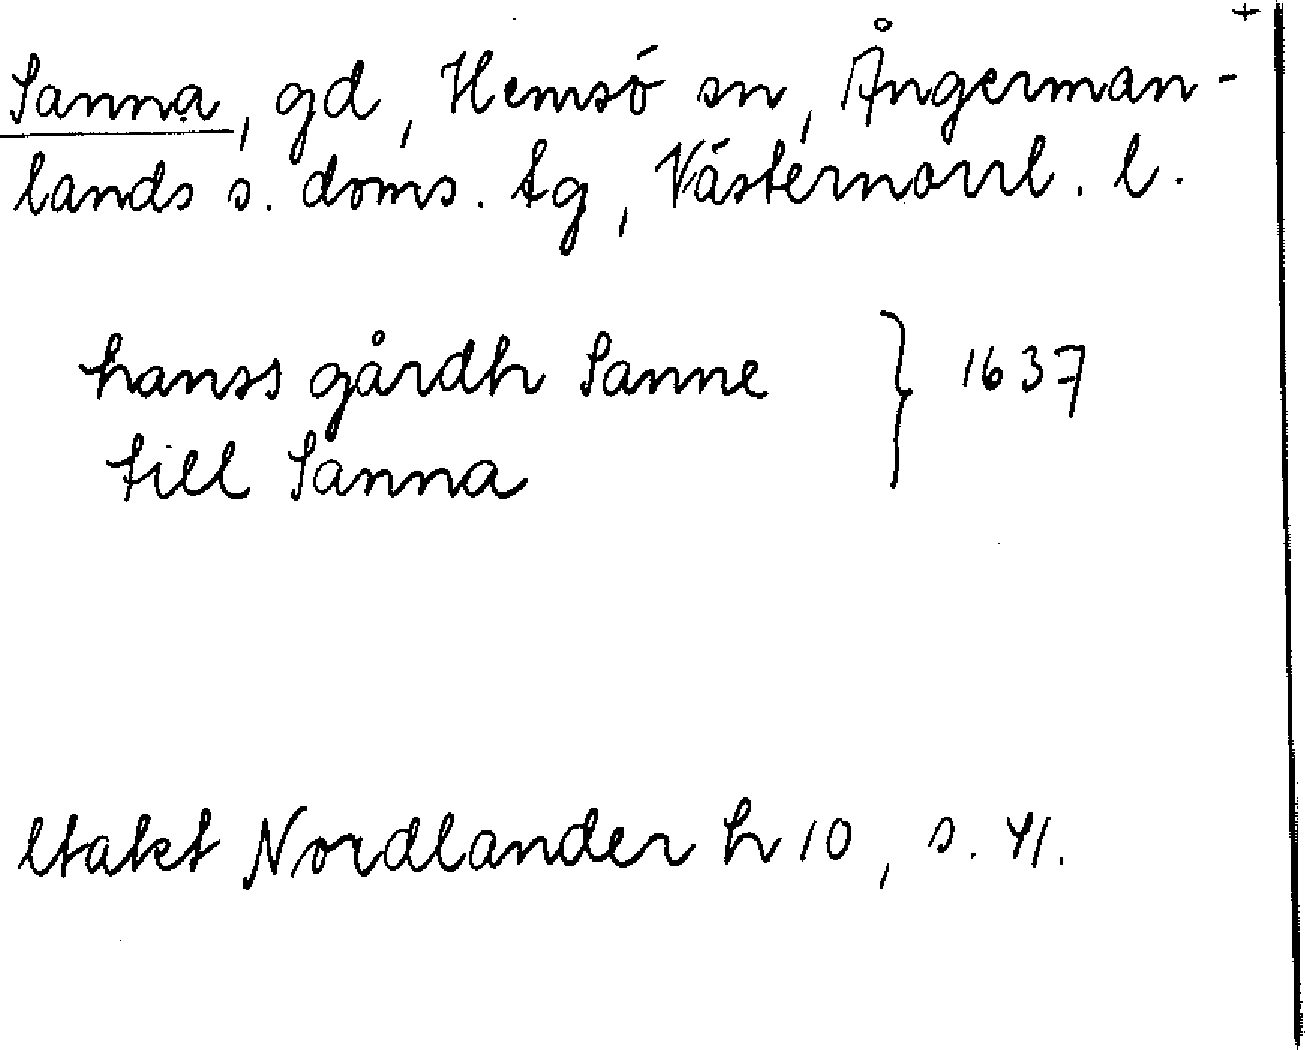 +
Sanna, gd, Hemsö sn, Ångerman-
lands s. doms. tg, Västernorrl. l.
hanss gårdh Sanne } 1637
till Sanna
Utakt Nordlander h 10, s. 41.